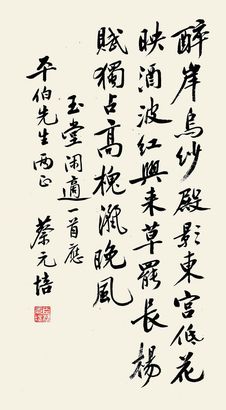 醉岸烏紗殿影東宮低花
映酒波紅興来草罷長楊
賦獨占高槐漑晚風
玉堂闲適一首應
平伯先生两正
蔡元培